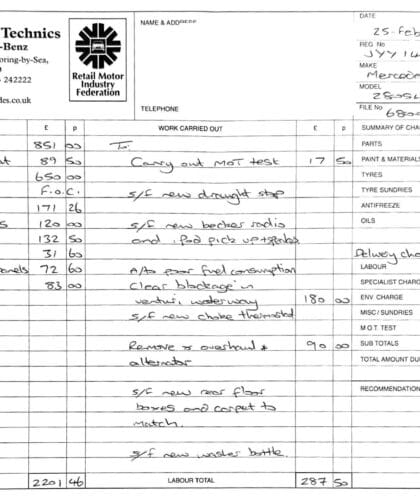 Technics
-Benz
oring-by-Sea,
242222
des.co.uk
Retail Motor
Industry
Federation
NAME & ADDRESS
TELEPHONE
DATE
25-Feb
REG No
JYY 14
MAKE
Merced
MODEL
280SL
FILE No
680
£ p WORK CARRIED OUT £ p SUMMARY OF CHA
851 00 To: PARTS
89 50 Carry out MOT test 17 50 PAINT & MATERIALS
650 00 TYRES
F.O.C. s/f new draught stop TYRE SUNDRIES
171 26 ANTIFREEZE
120 00 s/f new becker radio OILS
132 50 and iPod pick up +
31 60 Delivery cha
anels 72 60 A/to poor fuel consumption LABOUR
83 00 Clear blockage in SPECIALIST CHARG
venturi waterway 180 00 ENV CHARGE
s/f new choke thermostat MISC / SUNDRIES
M O T TEST
Remove & overhaul 90 00 SUB TOTALS
alternator TOTAL AMOUNT DU
s/f new rear floor RECOMMENDATION
boxes and carpet to
match.
s/f new washer bottle.
2201 46 LABOUR TOTAL 287 50